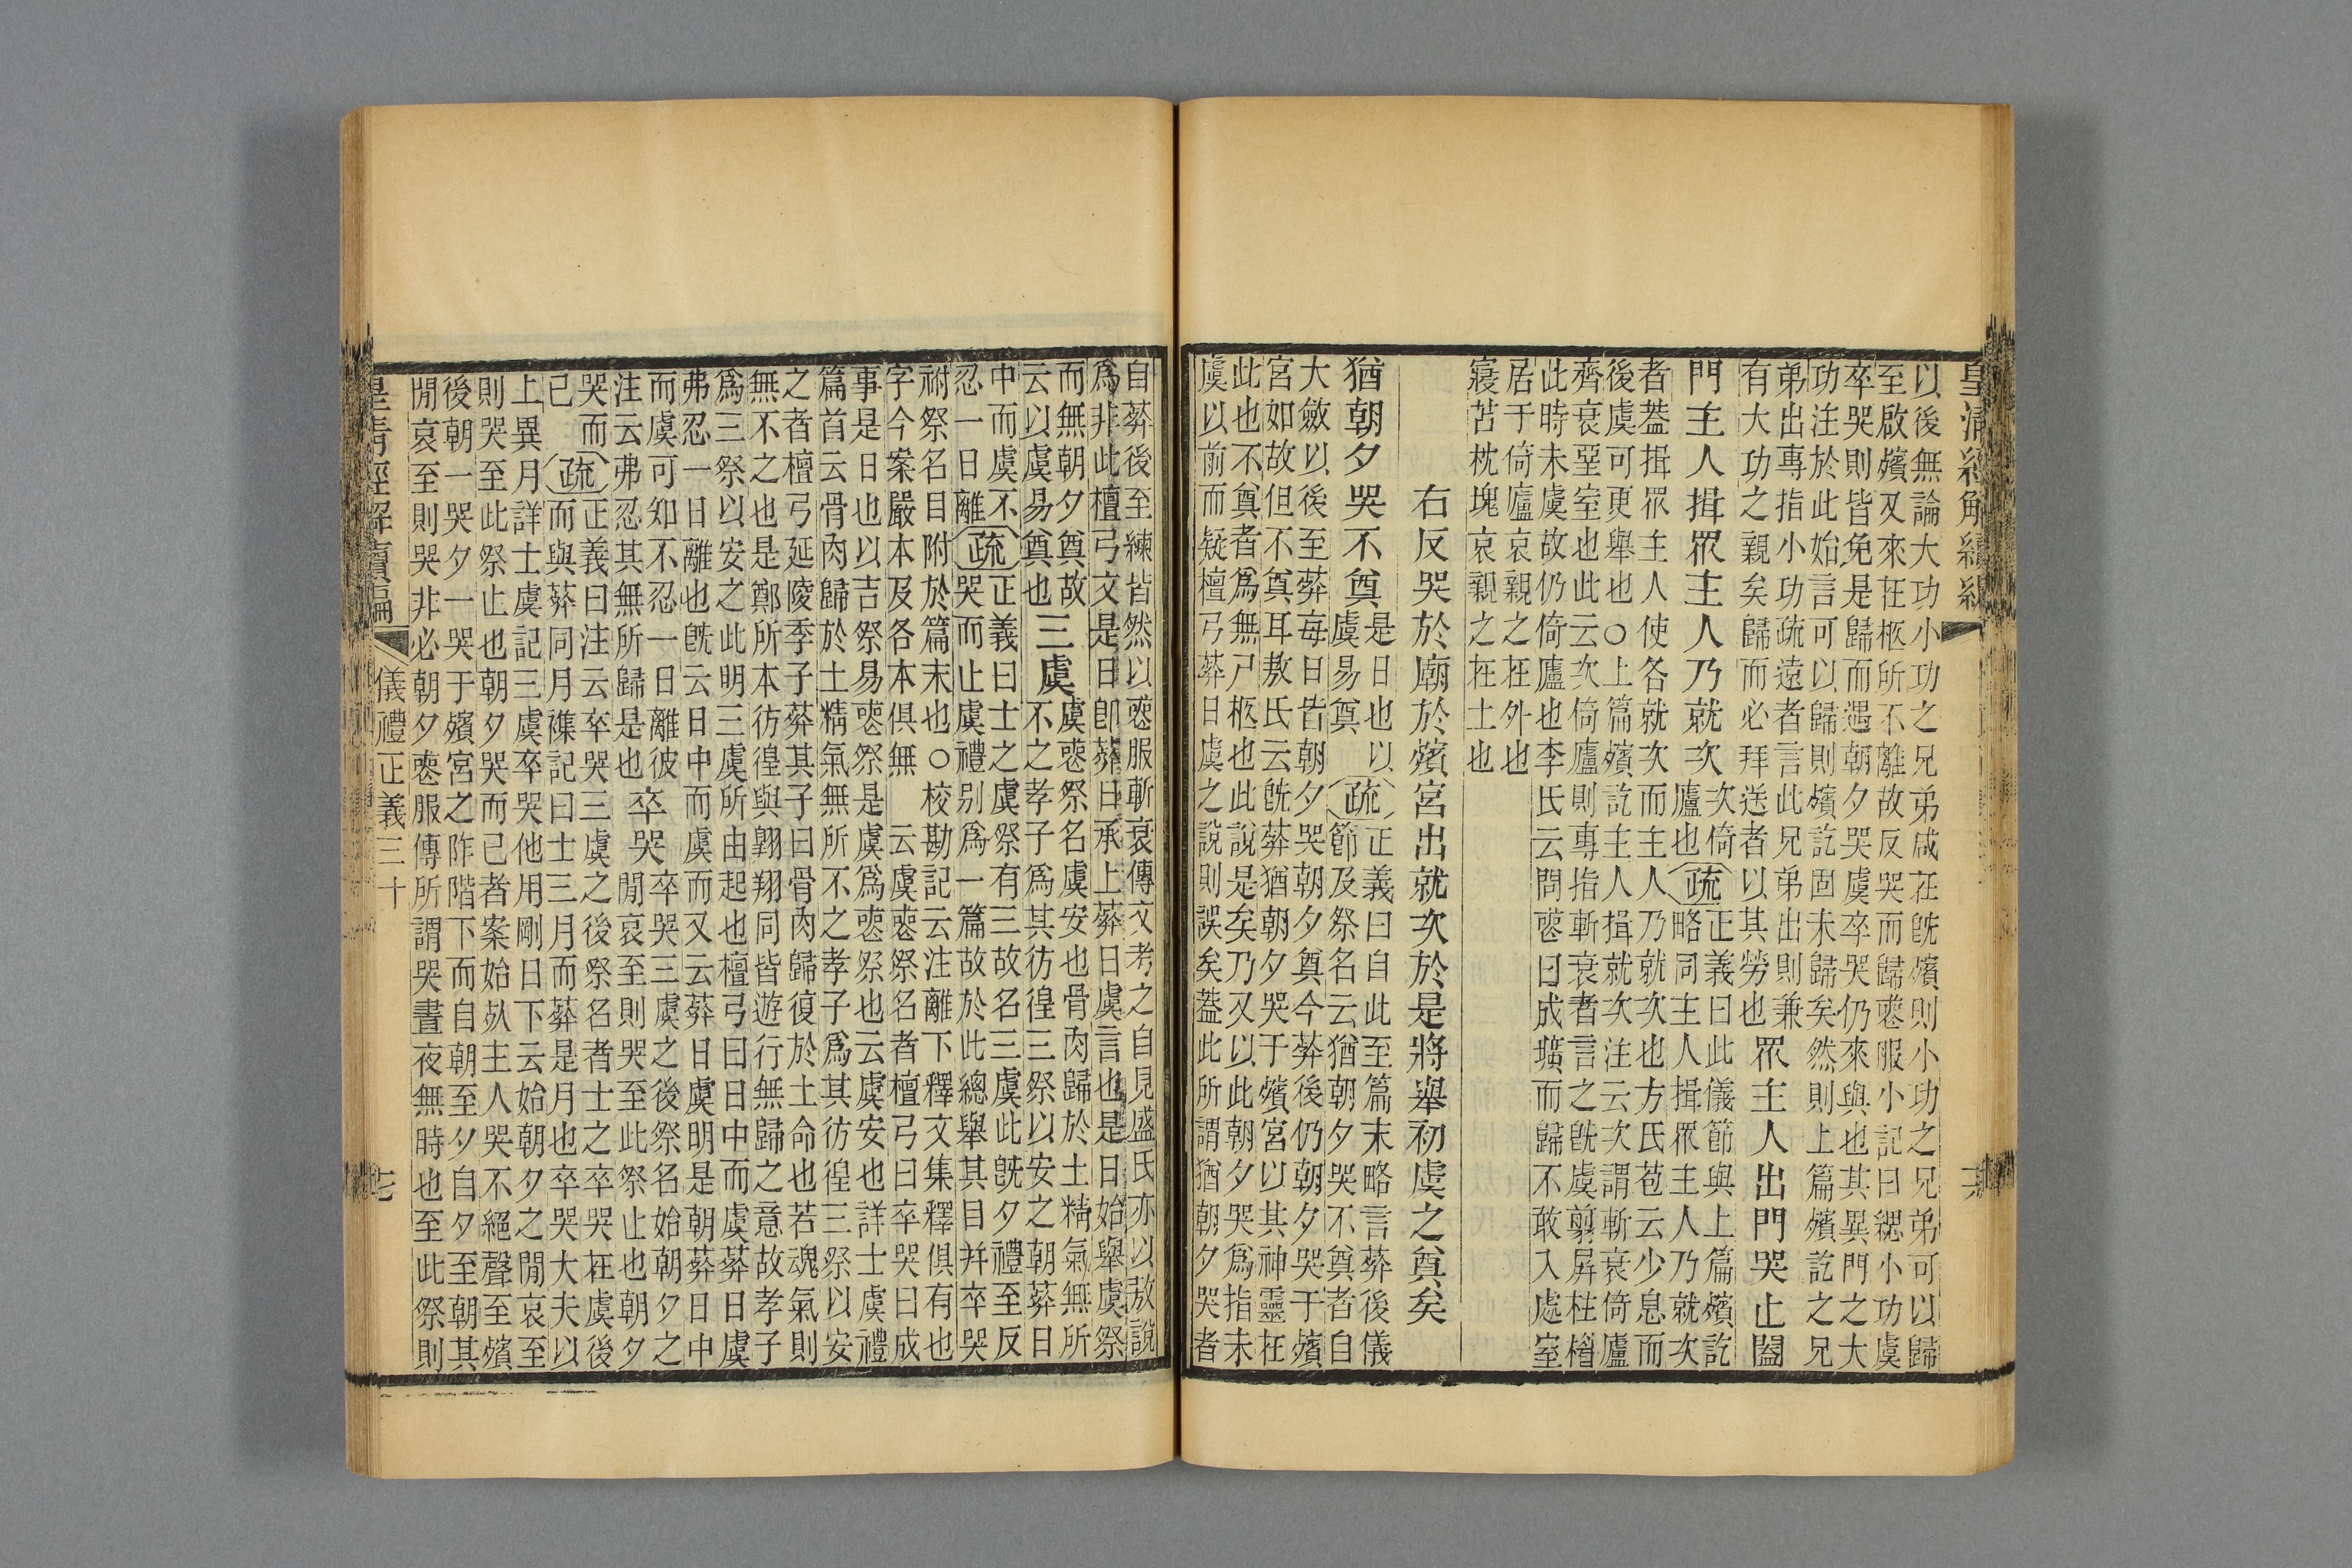 皇清經解續編
以後無論大功小功之兄弟咸在既殯則小功之兄弟可以歸
至啟殯又來在柩所不離故反哭而歸喪服小記曰緦小功虞
卒哭則皆免是歸而遇朝夕哭虞卒哭仍來與也其異門之大
功注於此始言可以歸則殯訖固未歸矣然則上篇殯訖之兄
弟出專指小功疏遠者言此兄弟出則兼
有大功之親矣歸而必拜送者以其勞也
眾主人出門哭止闔
門主人揖眾主人乃就次
次倚
廬也
疏
正義曰此儀節與上篇殯訖
略同主人揖眾主人乃就次
者蓋揖眾主人使各就次而主人乃就次也方氏苞云少息而
後虞可更舉也○上篇殯訖主人揖就次注云次謂斬衰倚廬
齊衰堊室也此云次倚廬則專指斬衰者言之既虞翦屏柱楣
此時未虞故仍倚廬也李氏云問喪曰成壙而歸不敢入處室
居于倚廬哀親之在外也
寢苫枕塊哀親之在土也
右反哭於廟於殯宮出就次於是將舉初虞之奠矣
猶朝夕哭不奠
是日也以
虞易奠
疏
正義曰自此至篇末略言葬後儀
節及祭名云猶朝夕哭不奠者自
大斂以後至葬每日皆朝夕哭朝夕奠今葬後仍朝夕哭于殯
宮如故但不奠耳敖氏云既葬猶朝夕哭于殯宮以其神靈在
此也不奠者爲無尸柩也此說是矣乃又以此朝夕哭爲指未
虞以前而疑檀弓葬日虞之說則誤矣蓋此所謂猶朝夕哭者
自葬後至練皆然以喪服斬衰傳文考之自見盛氏亦以敖說
爲非此檀弓文是日卽葬日承上葬日虞言也是日始舉虞祭
而無朝夕奠故
云以虞易奠也
三虞
虞喪祭名虞安也骨肉歸於土精氣無所
不之孝子爲其彷徨三祭以安之朝葬日
中而虞不
忍一日離
疏
正義曰士之虞祭有三故名三虞此旣夕禮至反
哭而止虞禮別爲一篇故於此總舉其目并卒哭
祔祭名目附於篇末也○校勘記云注離下釋文集釋俱有也
字今案嚴本及各本俱無　云虞喪祭名者檀弓曰卒哭曰成
事是日也以吉祭易喪祭是虞爲喪祭也云虞安也詳士虞禮
篇首云骨肉歸於土精氣無所不之孝子爲其彷徨三祭以安
之者檀弓延陵季子葬其子曰骨肉歸復於土命也若魂氣則
無不之也是鄭所本彷徨與翺翔同皆遊行無歸之意故孝子
爲三祭以安之此明三虞所由起也檀弓曰日中而虞葬日虞
弗忍一日離也旣云日中而虞而又云葬日虞明是朝葬日中
而虞可知不忍一日離彼
注云弗忍其無所歸是也
卒哭
卒哭三虞之後祭名始朝夕之
閒哀至則哭至此祭止也朝夕
哭而
已
疏
正義曰注云卒哭三虞之後祭名者士之卒哭在虞後
而與葬同月雜記曰士三月而葬是月也卒哭大夫以
上異月詳士虞記三虞卒哭他用剛日下云始朝夕之閒哀至
則哭至此祭止也朝夕哭而已者案始死主人哭不絕聲至殯
後朝一哭夕一哭于殯宮之阼階下而自朝至夕自夕至朝其
閒哀至則哭非必朝夕喪服傳所謂哭晝夜無時也至此祭則
皇清經解續編
儀禮正義三十